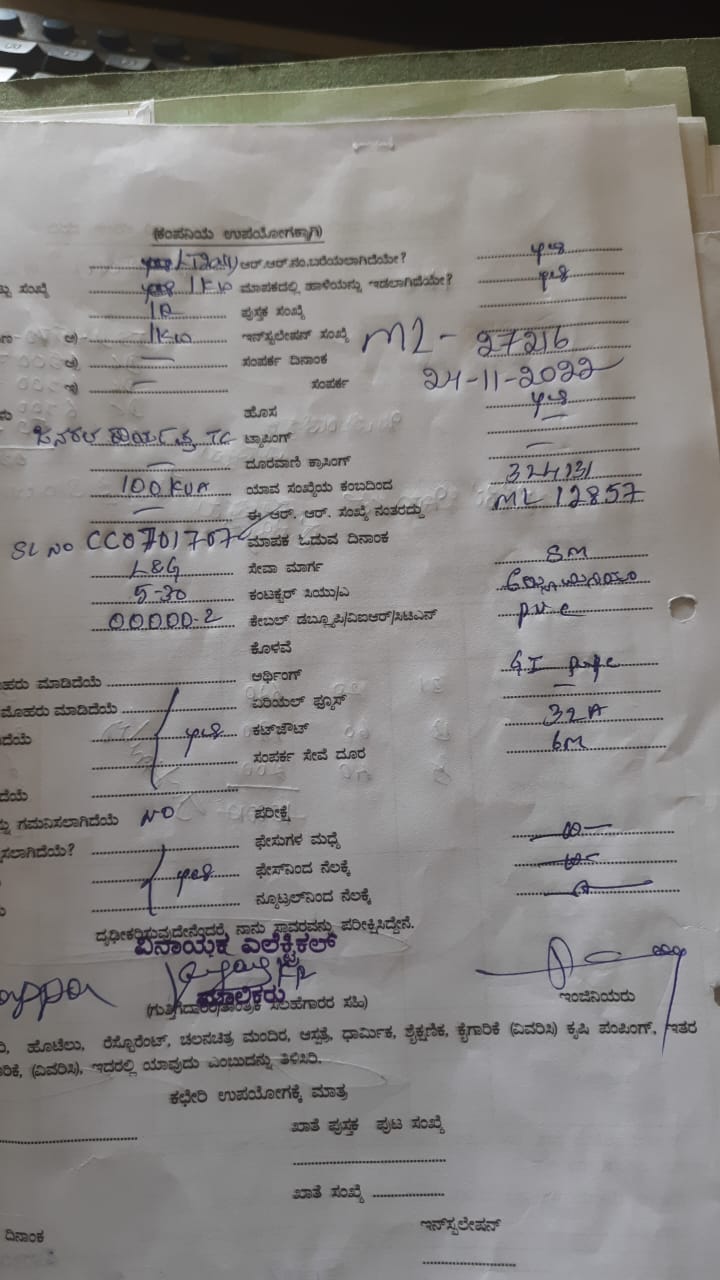 (ಕಂಪನಿಯ ಉಪಯೋಗಕ್ಕಾಗಿ)
yes LT2(a)(i) ಆರ್.ಆರ್.ನಂ.ಬರೆಯಲಾಗಿದೆಯೇ? yes
ಸಂಖ್ಯೆ yes 1KW ಮಾಪಕದಲ್ಲಿ ಹಾಳೆಯನ್ನು ಇಡಲಾಗಿದೆಯೇ? yes
ಪುಸ್ತಕ ಸಂಖ್ಯೆ
ಅ) 1KW ಇನ್‌ಸ್ಟಲೇಷನ್ ಸಂಖ್ಯೆ ML- 27216
ಆ) — ಸಂಪರ್ಕ ದಿನಾಂಕ 24-11-2022
ಇ) — ಸಂಪರ್ಕ
ಹೊಸ yes
TC ಟ್ಯಾಪಿಂಗ್ —
— ದೂರವಾಣಿ ಕ್ರಾಸಿಂಗ್ —
100 KVA ಯಾವ ಸಂಖ್ಯೆಯ ಕಂಬದಿಂದ 324131
— ಈ ಆರ್. ಆರ್. ಸಂಖ್ಯೆ ನಂತರದ್ದು ML 12857
SL NO CC0701707 ಮಾಪಕ ಓದುವ ದಿನಾಂಕ
L&G ಸೇವಾ ಮಾರ್ಗ 8M
5-30 ಕಂಟಕ್ಟರ್ ಸಿಯು/ಎ
00000-2 ಕೇಬಲ್ ಡಬ್ಲ್ಯೂಪಿ/ವಿಐಆರ್/ಸಿಟಿಎಸ್ PVC
ಕೊಳವೆ
ಮೊಹರು ಮಾಡಿದೆಯೆ ಅರ್ಥಿಂಗ್ GI pipe
ಮೊಹರು ಮಾಡಿದೆಯೆ ಏರಿಯಲ್ ಫ್ಯೂಸ್ —
yes ಕಟ್‌ಔಟ್ 32A
ಸಂಪರ್ಕ ಸೇವೆ ದೂರ 6M
ಗಮನಿಸಲಾಗಿದೆಯೆ NO ಪರೀಕ್ಷೆ
ಫೇಸುಗಳ ಮಧ್ಯೆ
yes ಫೇಸ್‌ನಿಂದ ನೆಲಕ್ಕೆ
ನ್ಯೂಟ್ರಲ್‌ನಿಂದ ನೆಲಕ್ಕೆ
ದೃಢೀಕರಿಸುವುದೇನೆಂದರೆ, ನಾನು ಸ್ಥಾವರವನ್ನು ಪರೀಕ್ಷಿಸಿದ್ದೇನೆ.
ವಿನಾಯಕ ಎಲೆಕ್ಟ್ರಿಕಲ್
ಮಾಲಿಕರು
ಸಲಹೆಗಾರರ ಸಹಿ) ಇಂಜಿನಿಯರು
ಹೊಟೆಲು, ರೆಸ್ಟೋರೆಂಟ್, ಚಲನಚಿತ್ರ ಮಂದಿರ, ಆಸ್ಪತ್ರೆ, ಧಾರ್ಮಿಕ, ಶೈಕ್ಷಣಿಕ, ಕೈಗಾರಿಕೆ (ವಿವರಿಸಿ) ಕೃಷಿ ಪಂಪಿಂಗ್, ಇತರ
(ವಿವರಿಸಿ), ಇದರಲ್ಲಿ ಯಾವುದು ಎಂಬುದನ್ನು ತಿಳಿಸಿರಿ.
ಕಛೇರಿ ಉಪಯೋಗಕ್ಕೆ ಮಾತ್ರ
ಖಾತೆ ಪುಸ್ತಕ ಪುಟ ಸಂಖ್ಯೆ
ಖಾತೆ ಸಂಖ್ಯೆ
ದಿನಾಂಕ ಇನ್‌ಸ್ಪಲೇಷನ್